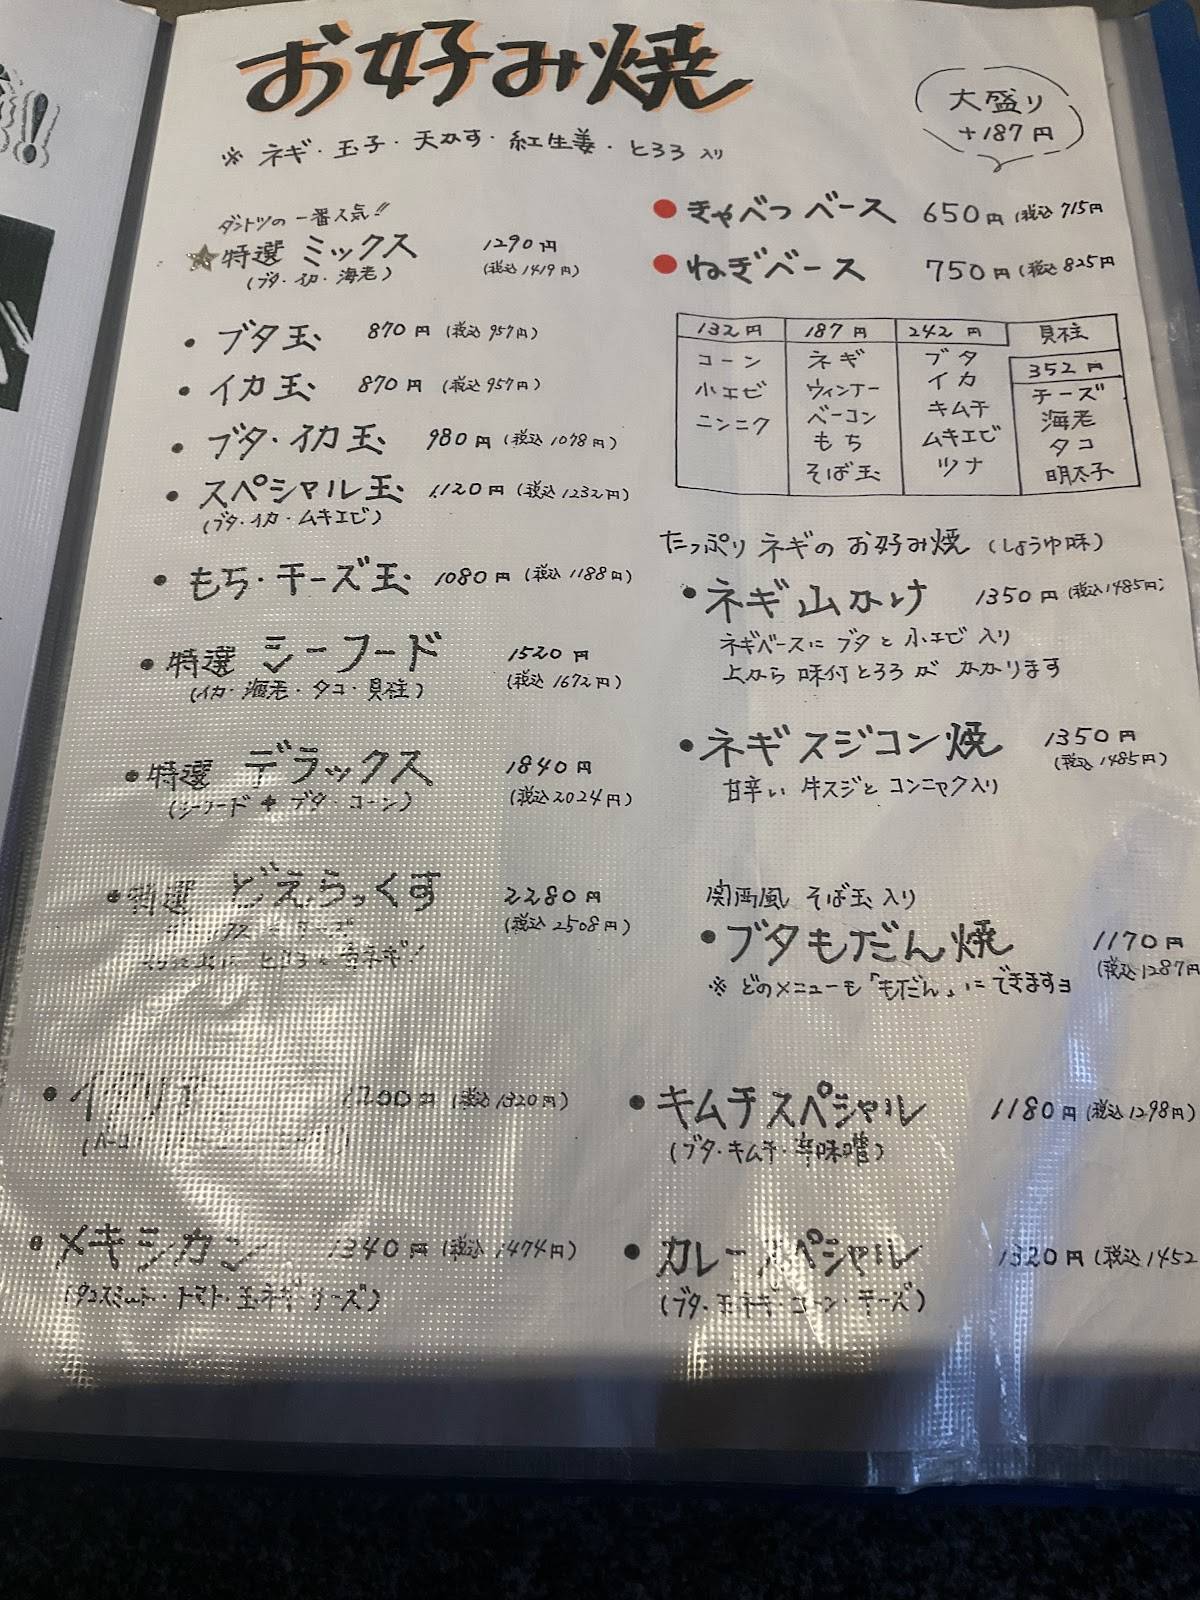 お好み焼
※ ネギ・玉子・天かす・紅生姜・とろろ 入り
大盛り
+187円
ダントツの一番人気!!
★特選 ミックス 1290円
(ブタ・イカ・海老) (税込1419円)
・ブタ玉 870円 (税込957円)
・イカ玉 870円 (税込957円)
・ブタ・イカ玉 980円 (税込1078円)
・スペシャル玉 1,120円 (税込1232円)
(ブタ・イカ・ムキエビ)
・もち・チーズ玉 1080円 (税込1188円)
・特選 シーフード 1520円
(イカ・海老・タコ・貝柱) (税込1672円)
・特選 デラックス 1840円
(シーフード + ブタ・コーン) (税込2024円)
・特選 どえらっくす 2280円
(税込2508円)
青ネギ!
1200円 (税込1320円)
・メキシカン 1340円 (税込1474円)
トマト・玉ネギ・チーズ)
● きゃべつベース 650円 (税込715円
● ねぎベース 750円 (税込825円
132円
コーン
小エビ
ニンニク
187円
ネギ
ウィンナー
ベーコン
もち
そば玉
242円
ブタ
イカ
キムチ
ムキエビ
ツナ
貝柱
352円
チーズ
海老
タコ
明太子
たっぷり ネギの お好み焼 (しょうゆ味)
・ネギ山かけ 1350円 (税込1485円)
ネギベースに ブタ と 小エビ 入り
上から 味付とろろ が かかります
・ネギスジコン焼 1350円
(税込1485円)
甘辛い 牛スジと コンニャク入り
関西風 そば玉 入り
・ブタもだん焼 1170円
(税込1287円
※ どのメニューも「もだん」に できますヨ
・キムチスペシャル 1180円 (税込1298円)
(ブタ・キムチ・辛味噌)
・カレースペシャル 1320円 (税込1452
(ブタ・玉ネギ・コーン・チーズ)